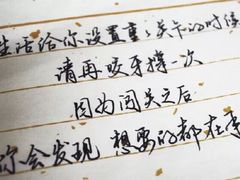 生活给你设置重重关卡的时候
请再咬牙撑一次
因为闯关之后
你会发现 想要的都在手